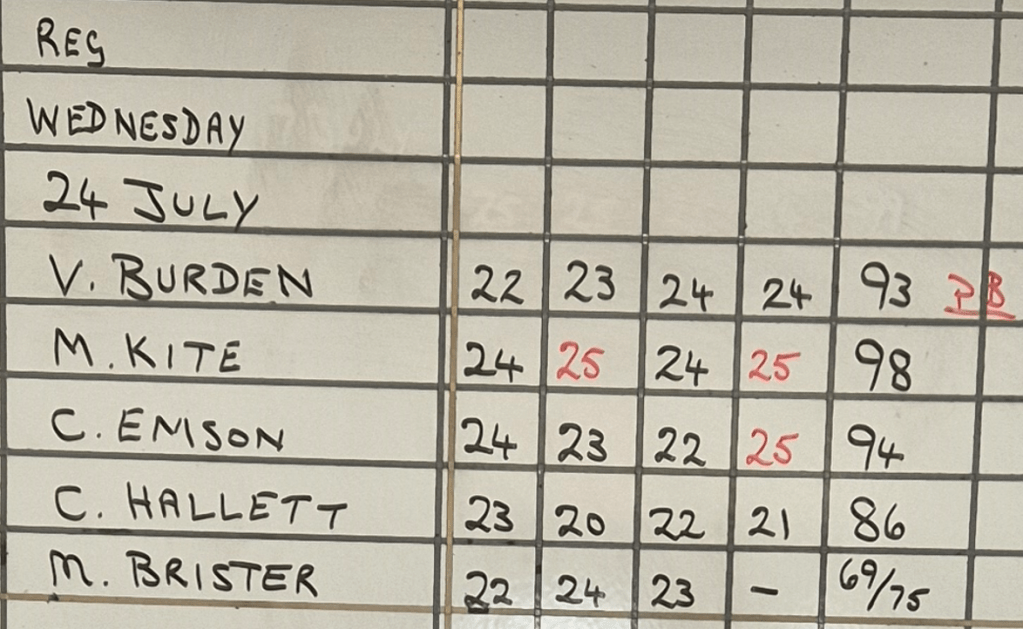 REG
WEDNESDAY
24 JULY
V. BURDEN 22 23 24 24 93 PB
M. KITE 24 25 24 25 98
C. EMSON 24 23 22 25 94
C. HALLETT 23 20 22 21 86
M. BRISTER 22 24 23 - 69/75